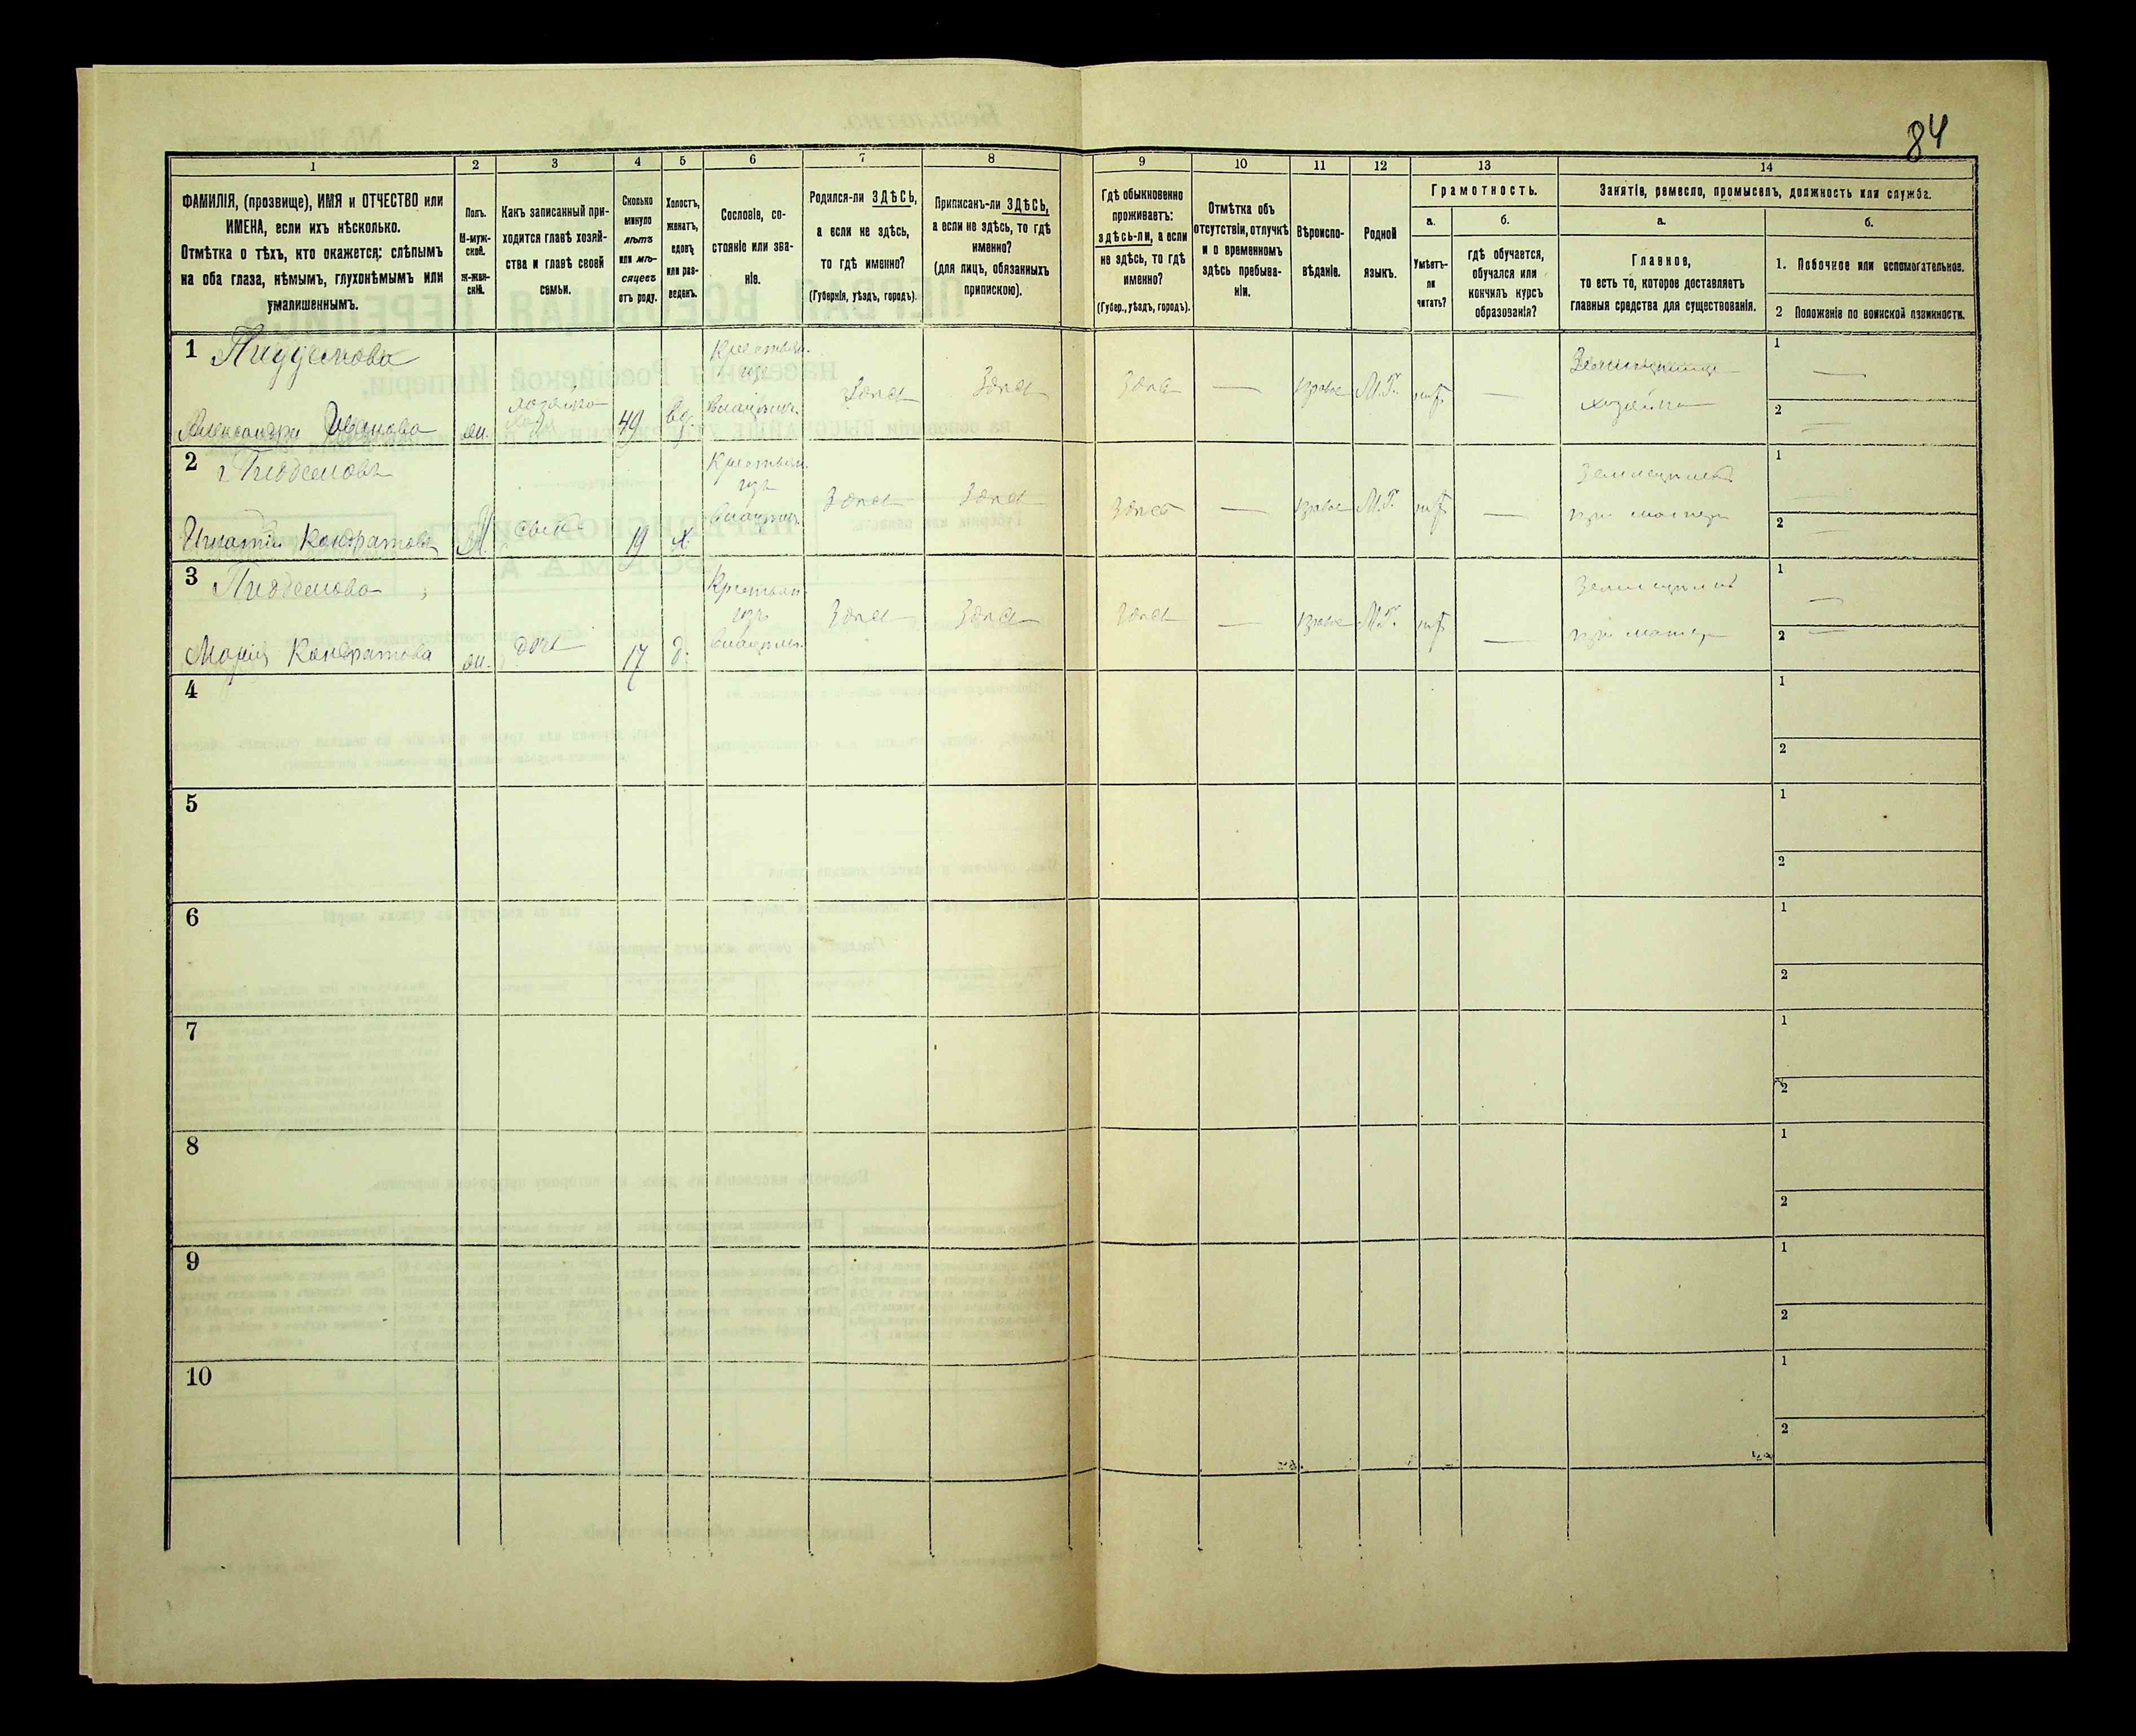 84
1
2
3
4
5
6
7
8
9
10
11
12
13
14
ФАМИЛІЯ, (прозвище), ИМЯ и ОТЧЕСТВО или
ИМЕНА, если ихъ нѣсколько.
Отмѣтка о тѣхъ, кто окажется: слѣпымъ
на оба глаза, нѣмымъ, глухонѣмымъ или
умалишеннымъ.
Полъ.
М-муж-
ской.
ж-жен-
скій.
Какъ записанный при-
ходится главѣ хозяй-
ства и главѣ своей
семьи.
Сколько
минуло
лѣтъ
или мѣ-
сяцевъ
отъ роду.
Холостъ,
женатъ,
вдовъ
или раз-
веденъ.
Сословіе, со-
стояніе или зва-
ніе.
Родился-ли ЗДѢСЬ,
а если не здѣсь,
то гдѣ именно?
(Губернія, уѣздъ, городъ).
Приписанъ-ли ЗДѢСЬ,
а если не здѣсь, то гдѣ
именно?
(для лицъ, обязанныхъ
припискою).
Гдѣ обыкновенно
проживаетъ:
здѣсь-ли, а если
не здѣсь, то гдѣ
именно?
(Губер., уѣздъ, городъ).
Отмѣтка объ
отсутствіи, отлучкѣ
и о временномъ
здѣсь пребыва-
ніи.
Вѣроиспо-
вѣданіе.
Родной
языкъ.
Грамотность.
а.
Умѣетъ-
ли
читать?
б.
гдѣ обучается,
обучался или
кончилъ курсъ
образованія?
Занятіе, ремесло, промыселъ, должность или служба.
а.
Главное,
то есть то, которое доставляетъ
главныя средства для существованія.
б.
1. Побочное или вспомогательное.
2 Положеніе по воинской повинности.
1
Александра Иванова
ж.
хозяйка
49
вд.
Крестьян.
изъ
владѣльч.
Здѣсь
Здѣсь
Здѣсь
—
М.Р.
—
хозяйка
1 —
2 —
2
Игнатій Кондратовъ
М.
сынъ
19
х.
Крестьян.
изъ
владѣльч.
Здѣсь
Здѣсь
Здѣсь
—
М.Р.
—
Земледѣліе
при матери
1
2
3
Марія Кондратова
ж.
дочь
17
д.
Крестьян.
изъ
владѣльч.
Здѣсь
Здѣсь
Здѣсь
—
М.Р.
—
Земледѣліе
при матери
1 —
2 —
4
1
2
5
1
2
6
1
2
7
1
2
8
1
2
9
1
2
10
1
2